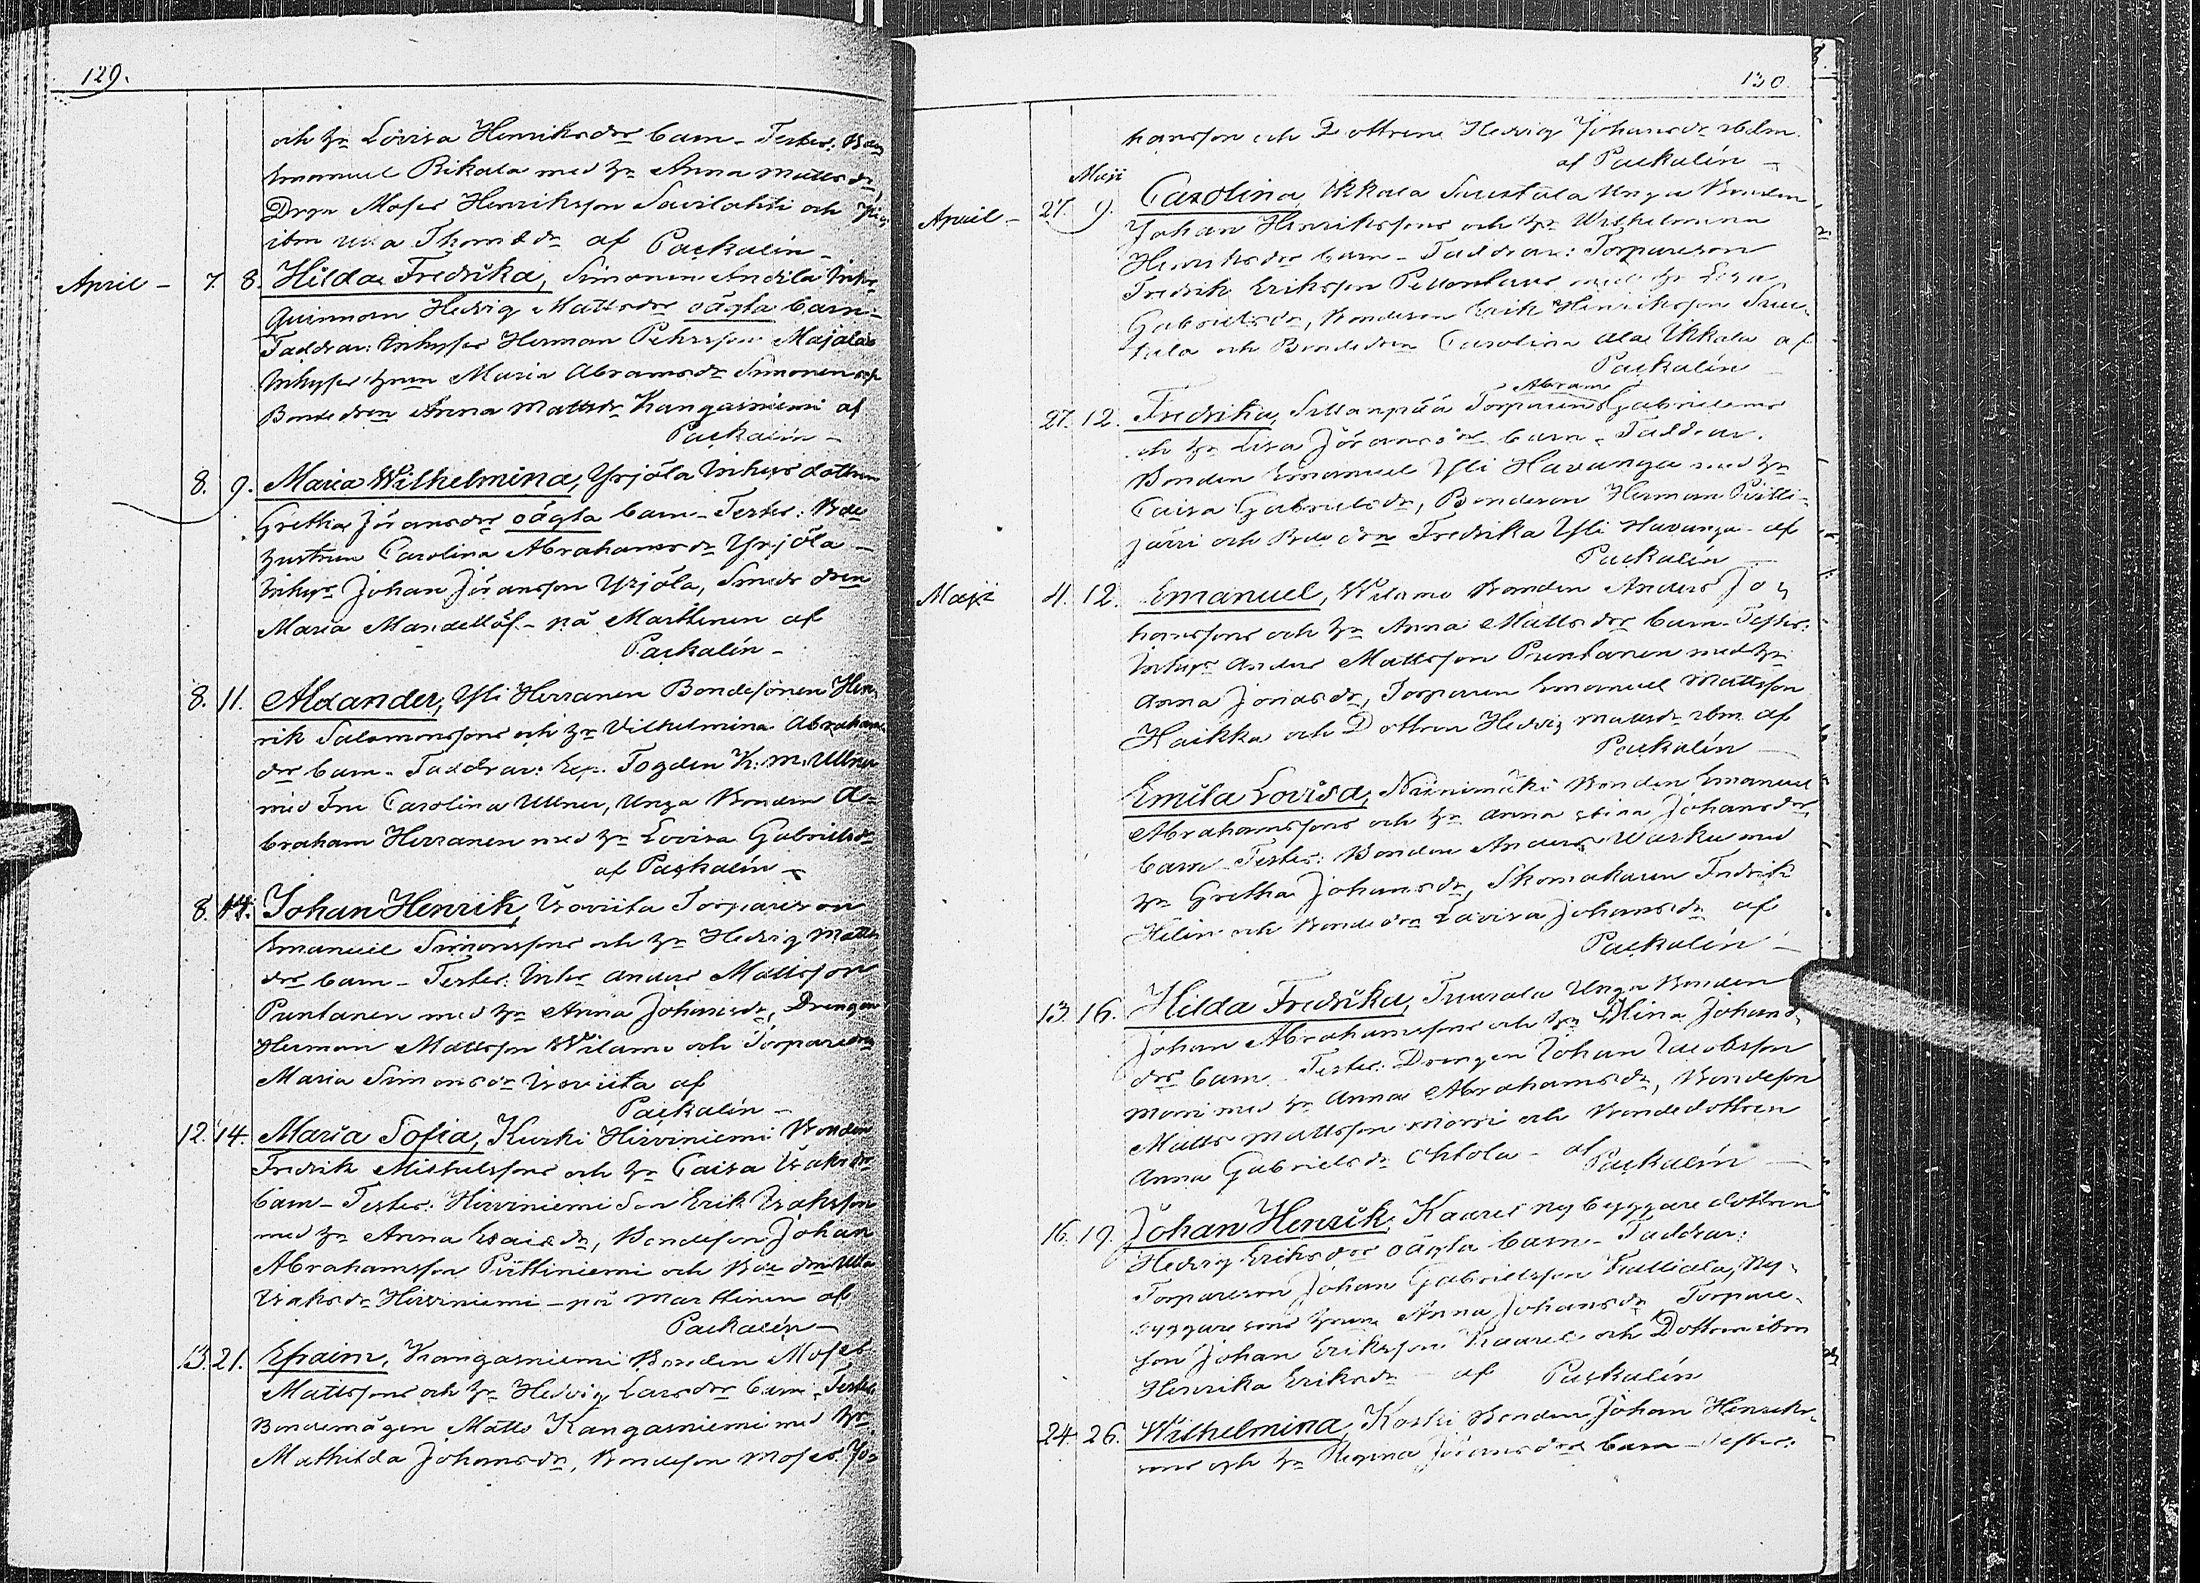 129.
och hr Lovisa Henriksdr barn. Testes: Bdn
Emanuel Rikala med hr Anna Mattsdr
Drgn Moses Henriksson Savilahti och
ibm Thomædr af Packalén
April - 7. 8. Hilda Fredrika, Simonen Andila Inhs
quinnan Hedvig Mattsdrs oägta barn -
Faddrar: Inhyses Herman Pehrsson Majala
Inhyses hrun Maria Abramsdr Simonen och
Bondedren Anna Mattsdr Kangasniemi af
Packalén -
8. 9. Maria Wilhelmina, Yrjöla Inhys dottren
Gretha Jöransdrs oägta barn - Testes: Bde
hustrun Carolina Abrahamsdr Yrjöla -
Inhys Johan Jöransson Yrjöla, Smeds dren
Maria Mandellöf - på Marttinen af
Packalén -
8. 11. Alexander, Yli Herranen Bondesonen Hen
rik Salomonssons och hr Vilhelmina Abrahams
drs barn - Faddrar: Exp. Fogden K: M. Ullner
med Fru Carolina Ullner, Unga Bonden A-
braham Herranen med hr Lovisa Gabrielsdr
af Packalén -
8. 14. Johan Henrik, Uroviita Torpareson
Emanuel Simonssons och hr Hedvig Matts
drs barn - Testes: Inhs Anders Mattsson
Puntanen med hr Anna Johansdr, Drengen
Herman Mattsson Wilamo och Torparedren
Maria Simonsdr Uroviita af
Packalén -
12. 14. Maria Sofia, Kurki Hirviniemi Bonden
Fredrik Michelssons och hr Caisa Isaksdrs
barn - Testes: Hirviniemi Son Erik Isaksson
med hr Anna Esaiædr, Bondeson Johan
Abrahamsson Piittiniemi och Bde dren Ulla
Isaksdr Hirviniemi - på Marttinen af
Packalén -
13. 21. Efraim, Kangasniemi Bonden Moses
Mattssons och hr Hedvig Larsdrs barn - Testes
Bondemågen Matts Kangasniemi med hr
Mathilda Johansdr, Bondeson Moses Jo-
130
hansson och Dottren Hedvig Johansdr ibdm.
af Packalén -
Maji
April - 27. 9. Carolina, Ikkala Saustala Unga Bonden
Johan Henrikssons och hr Wilhelmina
Henriksdrs barn - Faddrar: Torpareson
Fredrik Eriksson med hr Lisa
Gabrielsdr, Bondeson Erik Henriksson Sau-
tala och Bondedren Carolina Ala Ikkala af
Packalén
Abram
27. 12. Fredrika, Sillanpää Torparen Gabrielssons
och hr Lisa Jöransdrs barn - Faddrar.
Bonden Emanuel Yli Havanga med hr
Caisa Gabrielsdr, Bondeson Herman Piitti-
järvi och Bde dren Fredrika Yli Havanga af
Packalén
Maji 4. 12. Emanuel, Wilamo Bonden Anders Jo
hanssons och hr Anna Mattsdrs barn - Testes:
Inhys Anders Mattsson Puntanen med hr
Anna Jonasdr, Torparen Emanuel Mattsson
Haikka och Dottren Hedvig Mattsdr ibm af
Packalén
Emila Lovisa, Niinimäki Bonden Emanuel
Abrahamssons och hr Anna Stina Johansdrs
barn - Testes: Bonden Anders Warku med
hr Gretha Johansdr, Skomakaren Fredrik
Helin och Bonde dren Lovisa Johansdr af
Packalén
13. 16. Hilda Fredrika, Tuurala Unga Bonden
Johan Abrahamssons och hr Mina Johans-
drs barn Testes: Drengen Johan Jacobsson
Morri med hr Anna Abrahamsdr, Bondeson
Matts Mattsson Morri och Bondedottren
Anna Gabrielsdr Ohtola - af Packalén
16. 19. Johan Henrik, Kaares nybyggare dottren
Hedvig Eriksdrs oägta barn - Faddrar:
Torpareson Johan Gabrielsson Valliola, Ny-
byggare sons hrun Anna Johansdr Torpare-
son Johan Eriksson Kaares och Dottren ibm
Henrika Eriksdr - af Packalén
24. 26. Wilhelmina, Koski Bonden Johan Henriks-
sons och hr Regina Jöransdrs barn - Testes: